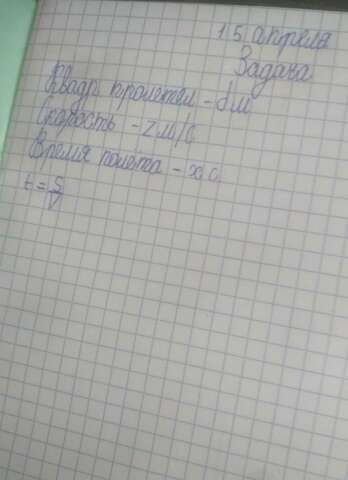 15 апреля
Задача
Квадр пролетел - dм
Скорость - zм/с
Время полёта - x с
t = S/V